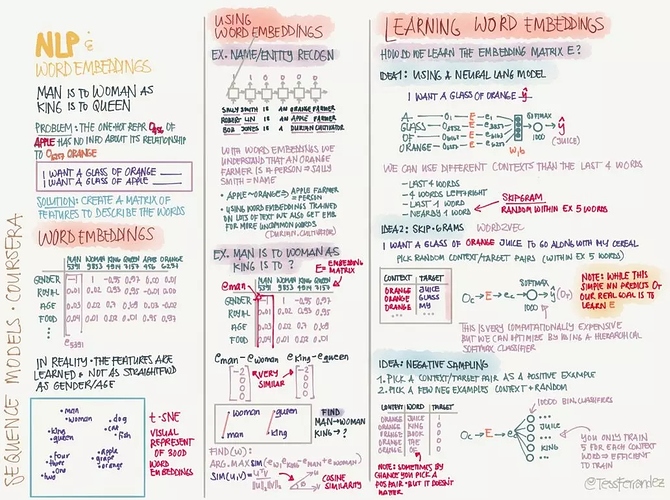 SEQUENCE MODELS · COURSERA
NLP &
WORD EMBEDDINGS
MAN IS TO WOMAN AS
KING IS TO QUEEN
PROBLEM · THE ONE-HOT REPR OF
APPLE HAS NO INFO ABOUT ITS RELATIONSHIP
TO ORANGE
I WANT A GLASS OF ORANGE ___
I WANT A GLASS OF APPLE ___
SOLUTION: CREATE A MATRIX OF
FEATURES TO DESCRIBE THE WORDS
WORD EMBEDDINGS
MAN WOMAN KING QUEEN APPLE ORANGE
5391 9853 4914 7157 456 6257
GENDER -1 1 -0.95 0.97
ROYAL
AGE
FOOD
e5391
IN REALITY · THE FEATURES ARE
LEARNED & NOT AS STRAIGHTFWD
AS GENDER/AGE
man
woman
dog
cat
fish
king
queen
four
three
one
two
apple
grape
orange
t-SNE
VISUAL
REPRESENT
OF 300D
WORD
EMBEDDINGS
USING
WORD EMBEDDINGS
EX. NAME/ENTITY RECOGN
1 1 0 0 0 0
SALLY SMITH IS AN ORANGE FARMER
ROBERT LIN IS AN APPLE FARMER
BOB JONES IS A DURIAN CULTIVATOR
WITH WORD EMBEDDINGS WE
UNDERSTAND THAT AN ORANGE
FARMER IS A PERSON ⇒ SALLY
SMITH = NAME
· APPLE ~ ORANGE ⇒ APPLE FARMER
= PERSON
· USING WORD EMBEDDINGS TRAINED
ON LOTS OF TEXT WE ALSO GET EMB
FOR MORE UNCOMMON WORDS
(DURIAN, CULTIVATOR)
EX. MAN IS TO WOMAN AS
KING IS TO ?
E = EMBEDDING
MATRIX
eman
MAN WOMAN KING QUEEN APPLE ORANGE
GENDER
ROYAL
AGE
FOOD
eman - ewoman eking - equeen
VERY
SIMILAR
woman
queen
man
king
FIND
MAN → WOMAN
KING → ?
FIND(W):
ARG MAX SIM(ew, eking - eman + ewoman)
SIM(u,v) =
COSINE
SIMILARITY
LEARNING WORD EMBEDDINGS
HOW DO WE LEARN THE EMBEDDING MATRIX E?
IDEA 1: USING A NEURAL LANG MODEL
I WANT A GLASS OF ORANGE ŷ
A
GLASS
OF
ORANGE
SOFTMAX
1000
ŷ
(JUICE)
W,b
WE CAN USE DIFFERENT CONTEXTS THAN THE LAST 4 WORDS
- LAST 4 WORDS
- 4 WORDS LEFT+RIGHT
- LAST 1 WORD
- NEARBY 1 WORD
SKIPGRAM
RANDOM WITHIN EX 5 WORDS
IDEA 2: SKIP-GRAMS WORD2VEC
I WANT A GLASS OF ORANGE JUICE TO GO ALONG WITH MY CEREAL
PICK RANDOM CONTEXT/TARGET PAIRS (WITHIN EX 5 WORDS)
CONTEXT TARGET
ORANGE JUICE
ORANGE GLASS
ORANGE MY
...
Oc → E → ec → ŷ (Ot)
SOFTMAX
NOTE: WHILE THIS
SIMPLE NN PREDICTS Ot
OUR REAL GOAL IS TO
LEARN E
THIS IS VERY COMPUTATIONALLY EXPENSIVE
BUT WE CAN OPTIMIZE BY USING A HIERARCHICAL
SOFTMAX CLASSIFIER
IDEA: NEGATIVE SAMPLING
1. PICK A CONTEXT/TARGET PAIR AS A POSITIVE EXAMPLE
2. PICK A FEW NEG EXAMPLES CONTEXT + RANDOM
CONTEXT WORD TARGET
ORANGE JUICE 1
ORANGE KING 0
ORANGE BOOK 0
ORANGE THE 0
ORANGE OF 0
NOTE: SOMETIMES BY
CHANCE YOU PICK A
POS PAIR · BUT IT DOESN'T
MATTER
Oc → E → ec
10000 BIN. CLASSIFIERS
JUICE
KING
YOU ONLY TRAIN
5 FOR EACH CONTEXT
WORD = EFFICIENT
TO TRAIN
@TessFerrandez